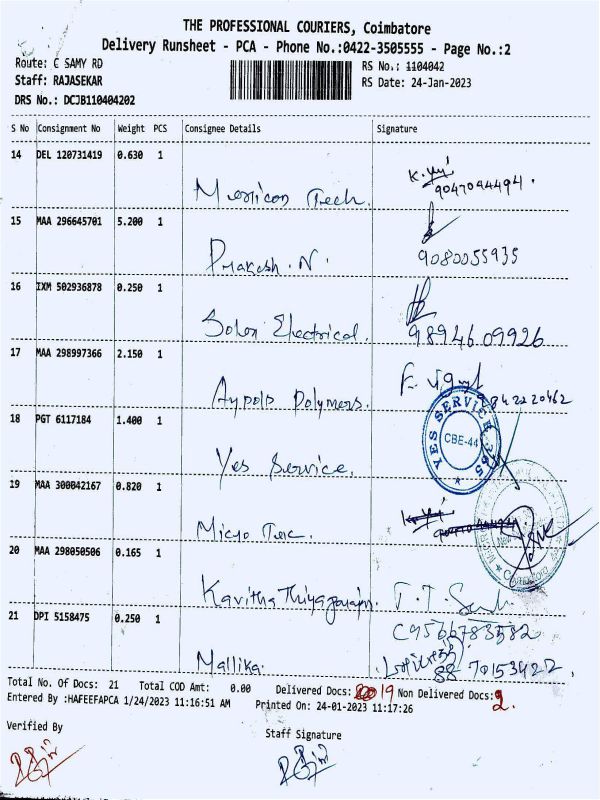 THE PROFESSIONAL COURIERS, Coimbatore
Delivery Runsheet - PCA - Phone No.:0422-3505555 - Page No.:2
Route: C SAMY RD
RS No.: 1104042
Staff: RAJASEKAR
RS Date: 24-Jan-2023
DRS No.: DCJB110404202
S No Consignment No Weight PCS Consignee Details Signature
14 DEL 120731419 0.630 1
Tech. 9047094494.
15 MAA 296645701 5.200 1
Prakash.N. 9080055935
16 IXM 502936878 0.250 1
Solon Electrical. 98946 09926
17 MAA 298997366 2.150 1
Polymers. 9842220462
18 PGT 6117184 1.400 1
YES SERVICE
CBE-44
Yes Service.
19 MAA 300042167 0.820 1
Micro
20 MAA 298050506 0.165 1
Kavitha
C9566783582
21 DPI 5158475 0.250 1
Mallika. 88 70153422.
Total No. Of Docs: 21 Total COD Amt: 0.00 Delivered Docs: 19 Non Delivered Docs: 2.
Entered By :HAFEEFAPCA 1/24/2023 11:16:51 AM Printed On: 24-01-2023 11:17:26
Verified By
Staff Signature